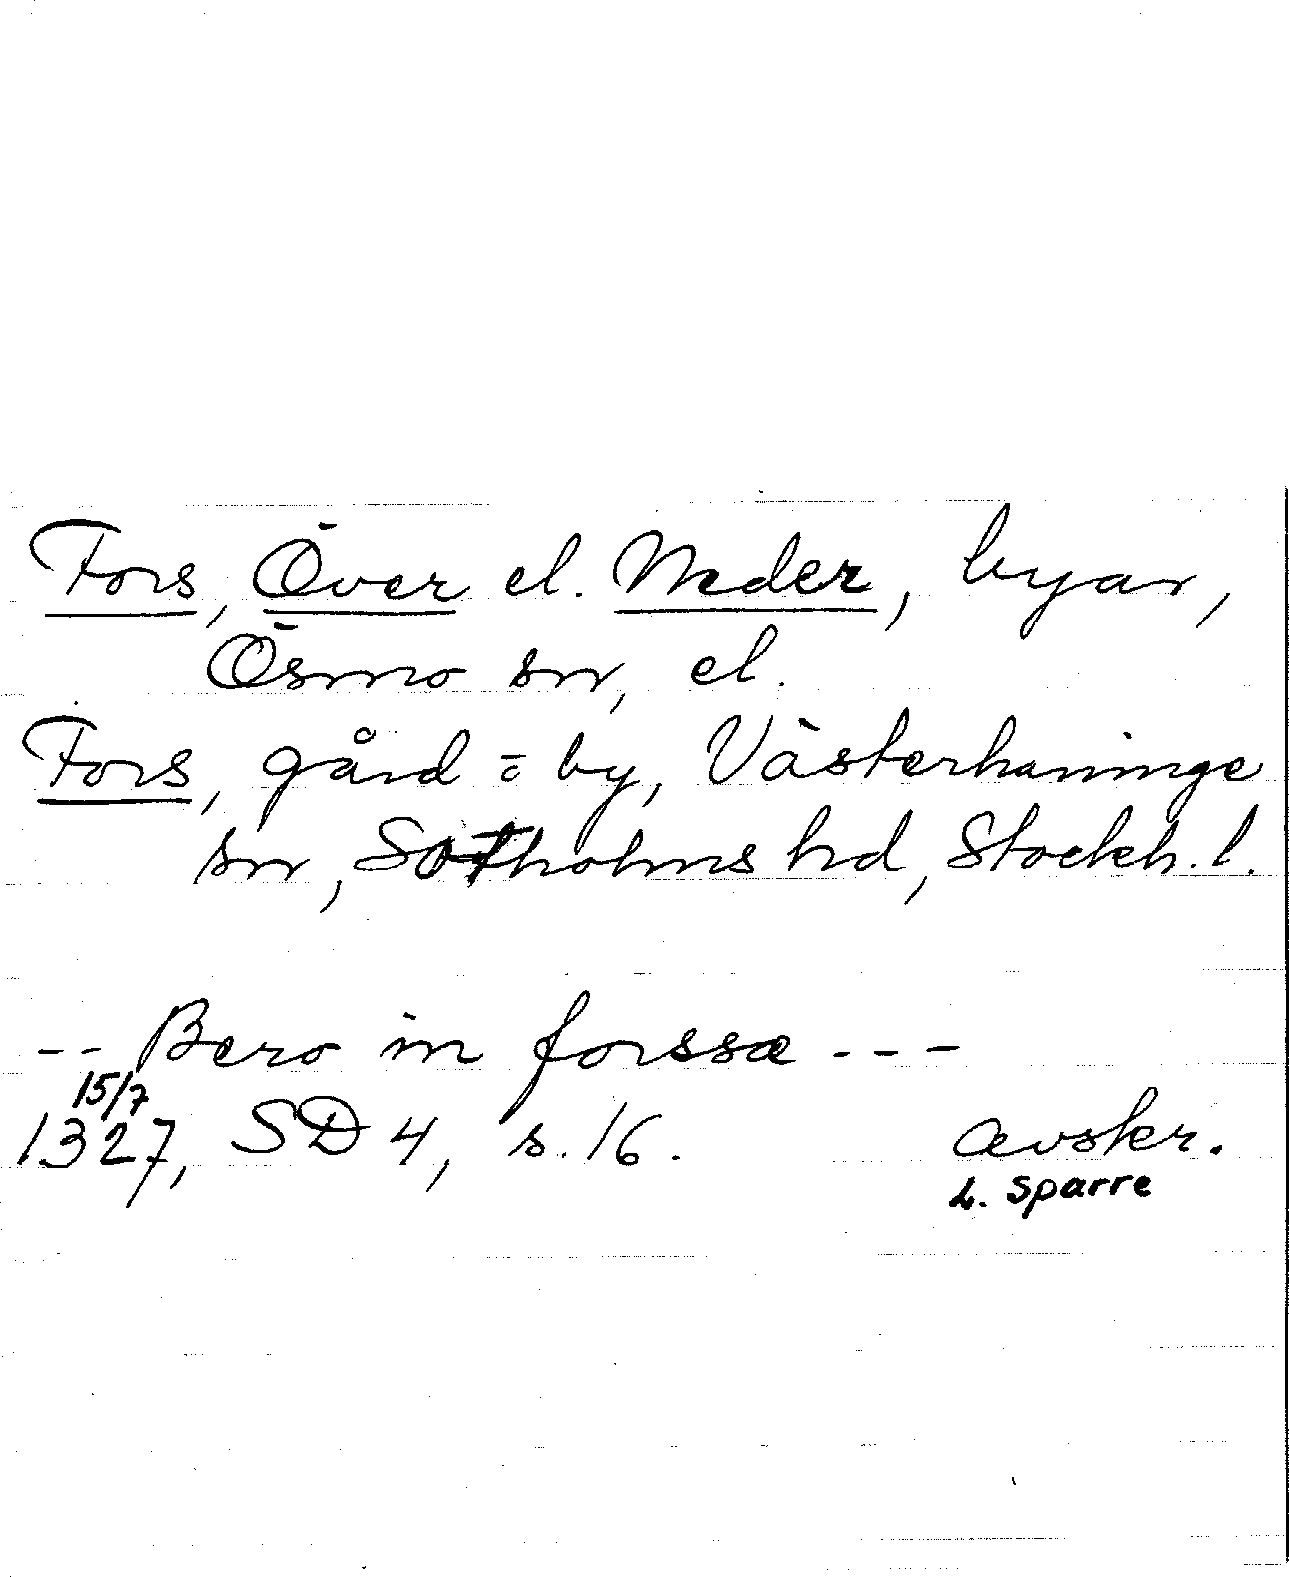 Fors, Över el. Neder, byar,
Ösmo sn, el.
Fors, gård o by, Västerhaninge
sn, Sotholms hd, Stockh. l.
-- Bero in forssæ ---
15/7
1327, SD 4, s. 16. avskr.
L. Sparre